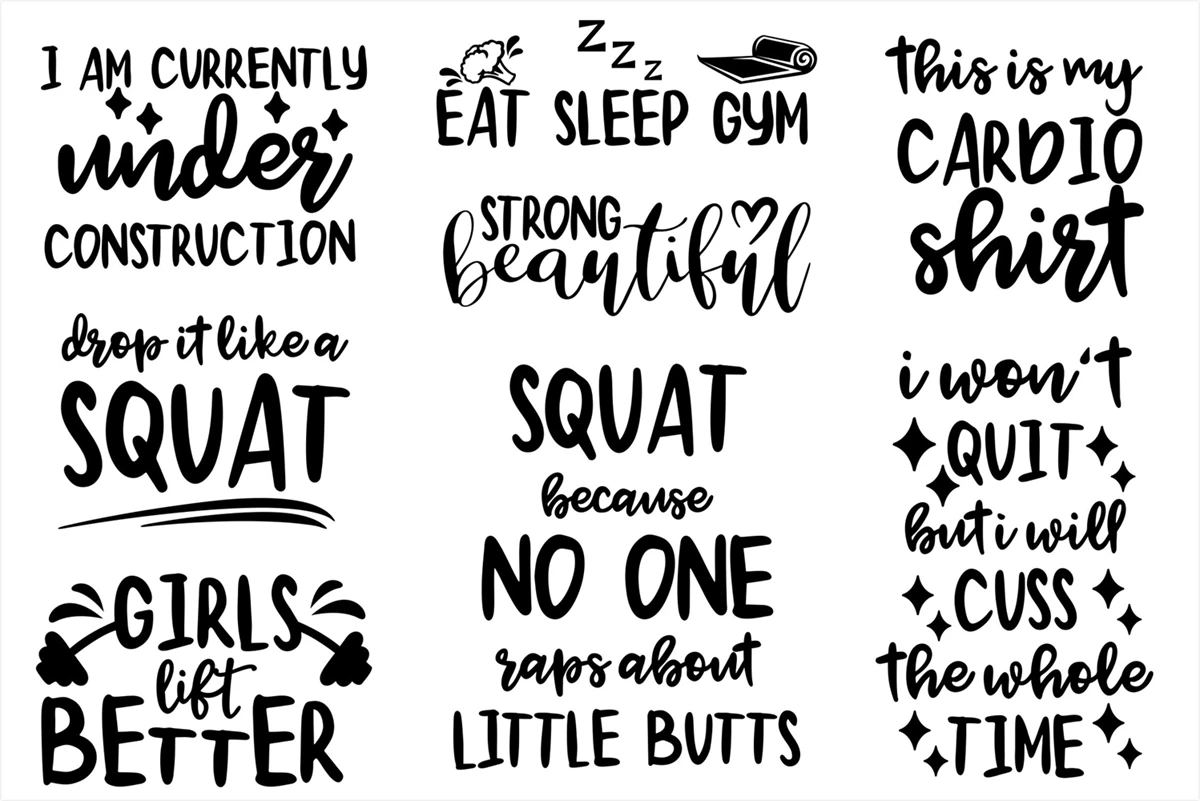 I AM CURRENTLY
under
CONSTRUCTION
drop it like a
SQUAT
GIRLS
lift
BETTER
Z Z Z
EAT SLEEP GYM
STRONG
beautiful
SQUAT
because
NO ONE
raps about
LITTLE BUTTS
this is my
CARDIO
shirt
i won't
QUIT
but i will
CUSS
the whole
TIME